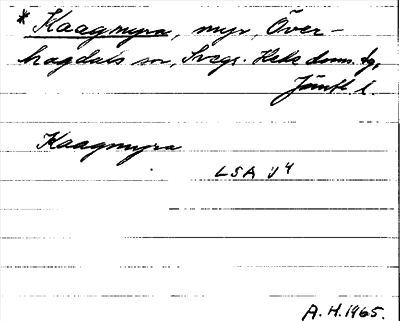 * Kaagmyra, myr, Över-
hogdals sn, Svegs. Heds doms. tg,
Jämtl. l.
Kaagmyra
LSA J4
A. H. 1965.